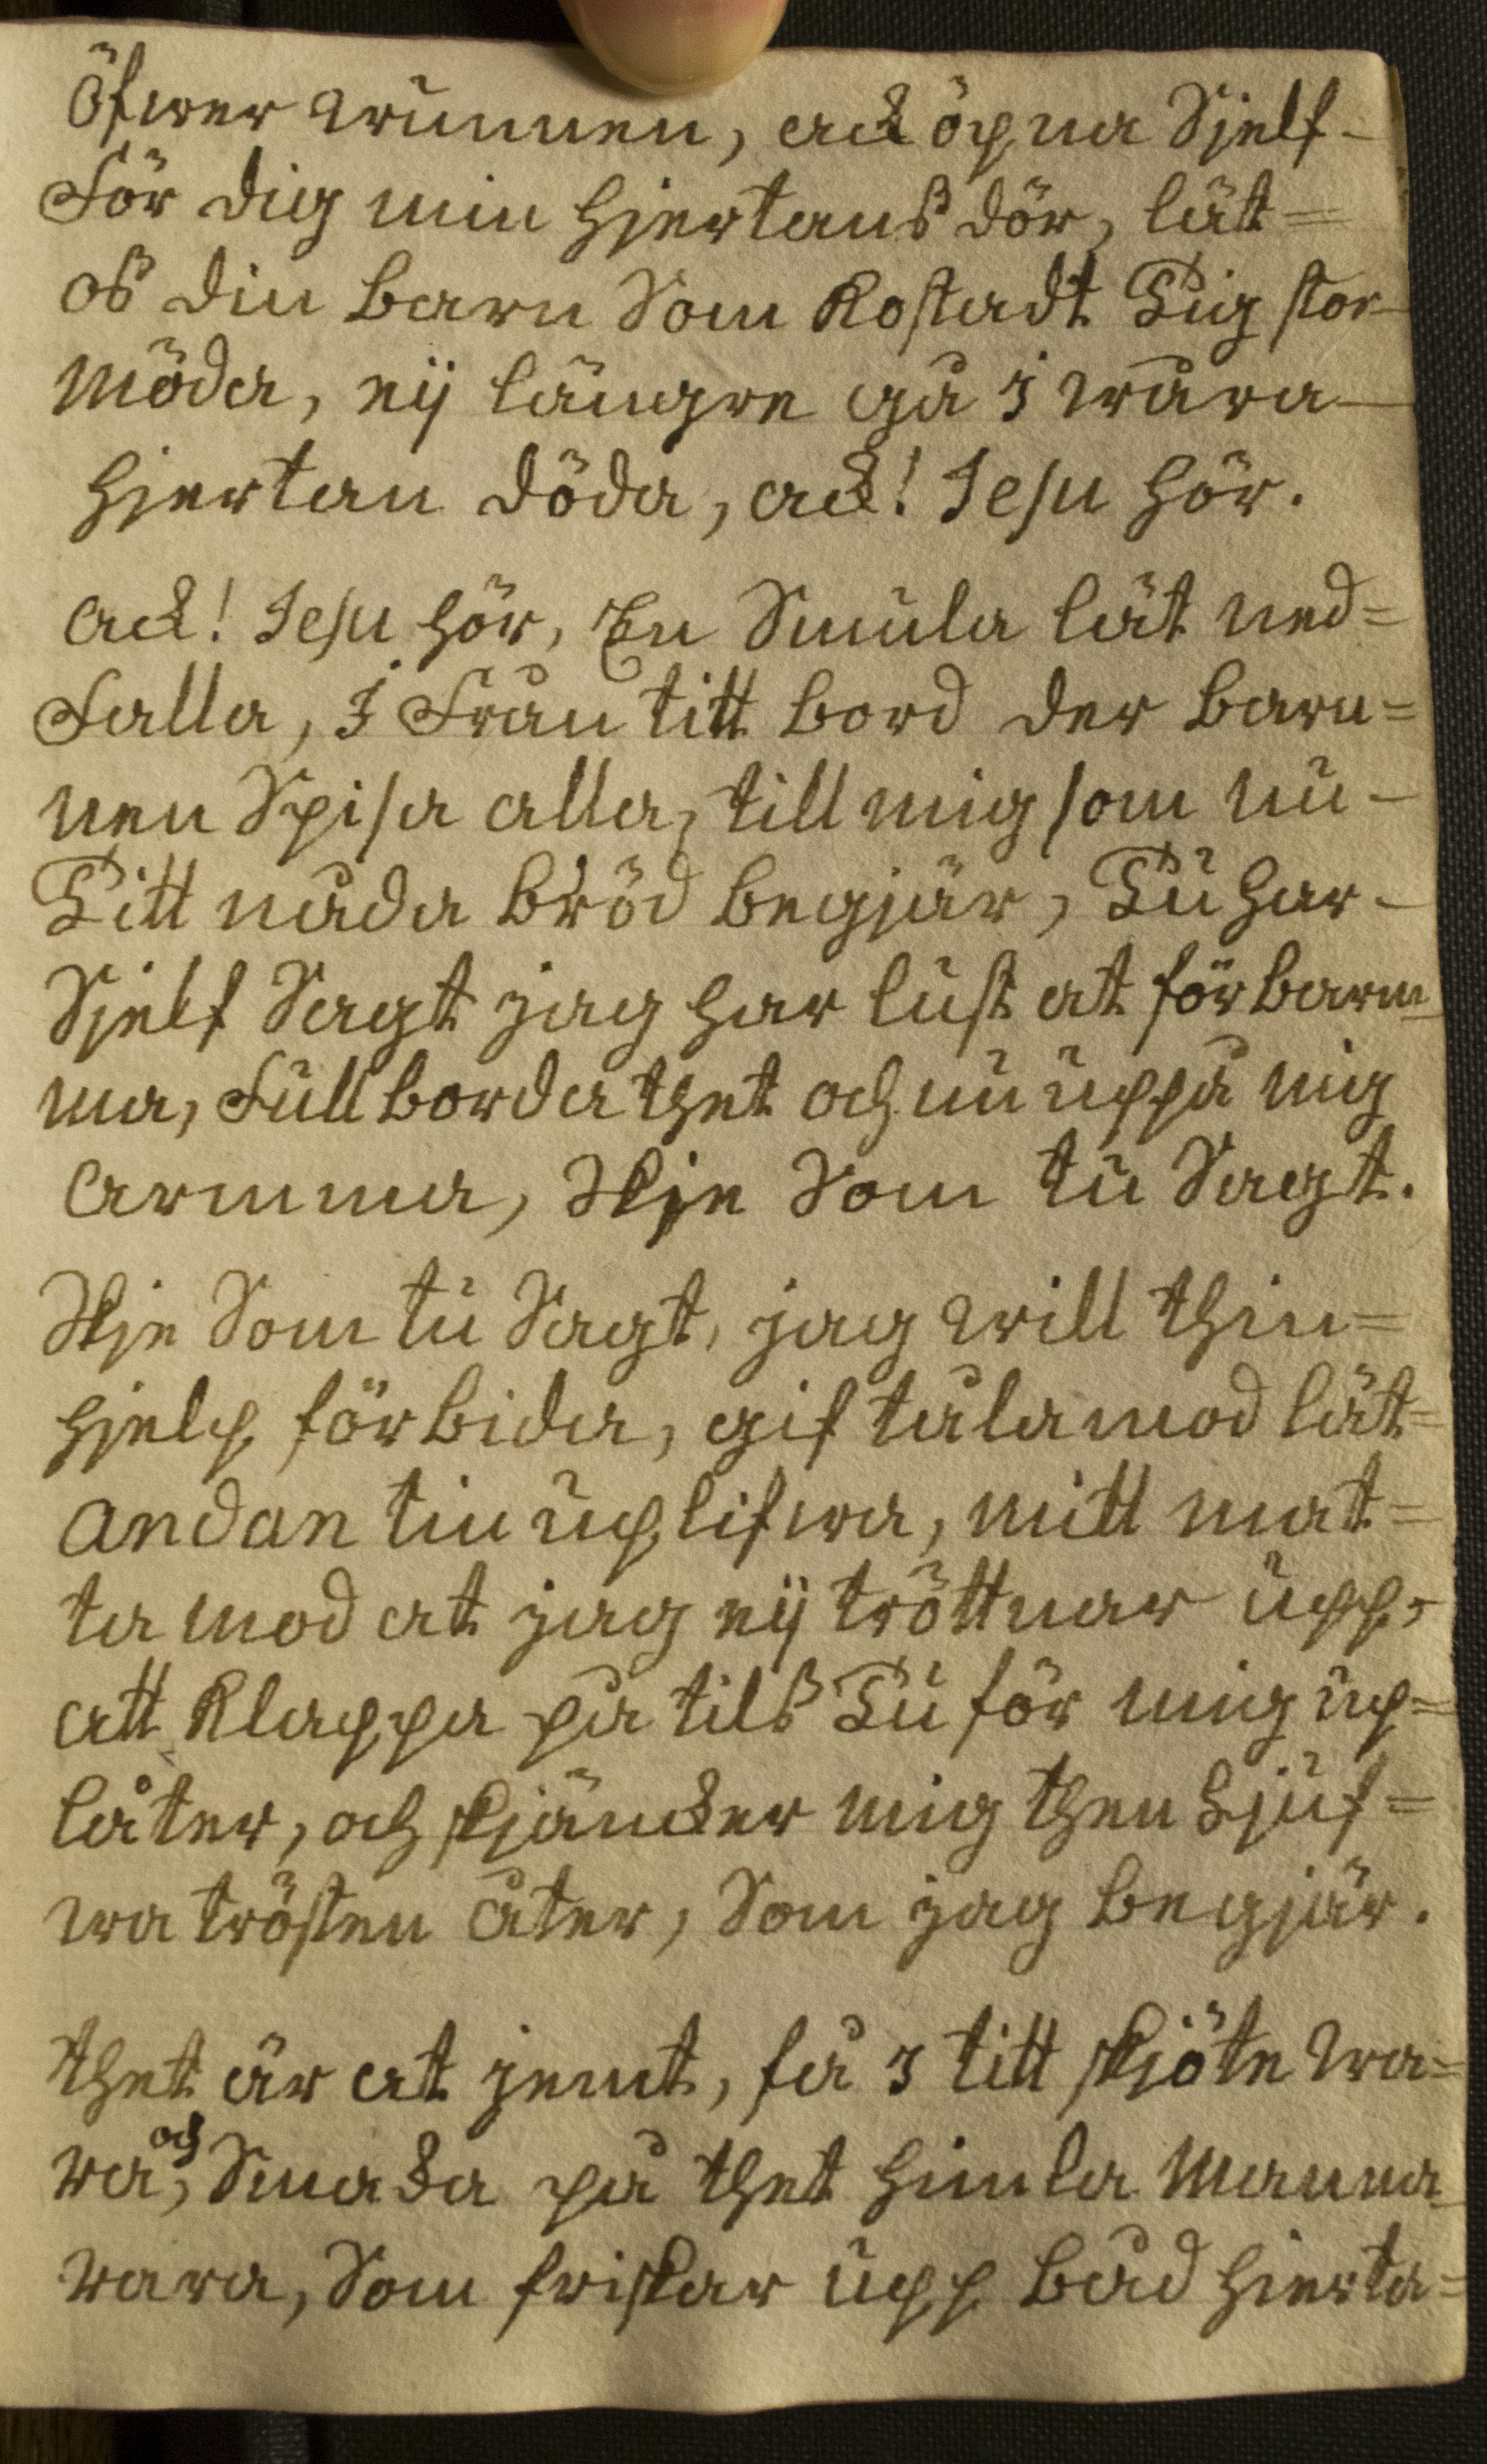 Öfwer wunnen, ack öpna Sjelf-
För dig min hjertans dör, låt=
oß din barn Som Kostadt Tig stor-
möda, eij längre gå i wåra-
hjertan döda, ack! Jesu hör.
ack! Jesu hör, En Smula låt ned=
Falla, i Från titt bord der barn=
nen Spisa alla, till mig som nu-
Titt nåda bröd begjär, Tu har-
Sjelf Sagt jag har lust at förbarm-
ma, Fullborda thet och nu uppå mig
armma, Skje Som tu Sagt.
Skje Som tu Sagt, jag will thin=
hjelp förbida, gif tålamod låt=
andan tin uplifwa, mitt mat=
ta mod at jag eij tröttnar upp,
att Klappa på tilß Tu för mig up=
låter, och skjäncker mig then Ljuf=
wa trösten åter, Som jag begjär.
thet är at jemt, få i titt skjöte wa=
ra, och Smacka på thet himla Manna
wara, Som friskar upp båd hierta=